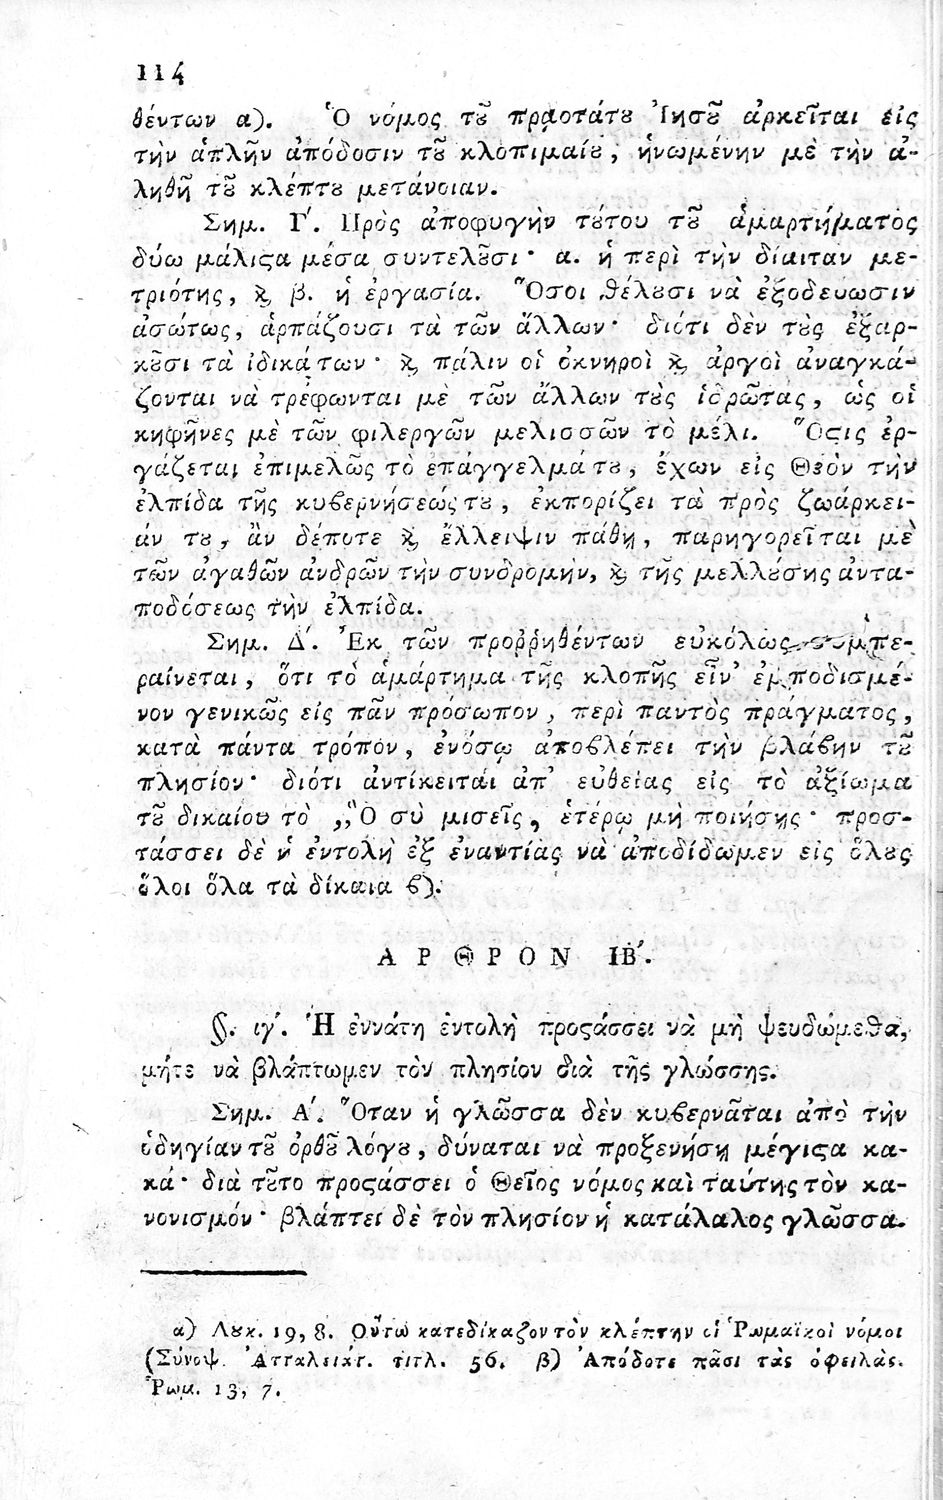 114
θέντων α). Ὁ νόμος τȣ͂ πραοτάτȣ Ἰησȣ͂ ἀρκεῖται εἰς
τὴν ἁπλῆν ἀπόδοσιν τȣ͂ κλοπιμαίȣ, ἡνωμένην μὲ τὴν ἀ-
ληθῆ τȣ͂ κλέπτȣ μετάνοιαν.
Σημ. Γ΄. Πρὸς ἀποφυγὴν τȣ́τȣ τȣ͂ ἁμαρτήματος
δύω μάλιϛα μέσα συντελȣ͂σι· α. ἡ περὶ τὴν δίαιταν με-
τριότης, ϗ β. ἡ ἐργασία. Ὅσοι θέλȣσι νὰ ἐξοδεύωσιν
ἀσώτως, ἁρπάζουσι τὰ τῶν ἄλλων· διότι δὲν τȣ̀ς ἐξαρ-
κȣ͂σι τὰ ἰδικάτων· ϗ πάλιν οἱ ὀκνηροὶ ϗ ἀργοὶ ἀναγκά-
ζονται νὰ τρέφωνται μὲ τῶν ἄλλων τȣ̀ς ἱδρῶτας, ὡς οἱ
κηφῆνες μὲ τῶν φιλεργῶν μελισσῶν τὸ μέλι. Ὅϛις ἐρ-
γάζεται ἐπιμελῶς τὸ ἐπάγγελμά τȣ, ἔχων εἰς Θεὸν τὴν
ἐλπίδα τῆς κυβερνήσεώς τȣ, ἐκπορίζει τὰ πρὸς ζωάρκει-
άν τȣ, ἂν δέποτε ϗ ἔλλειψιν πάθῃ, παρηγορεῖται μὲ
τῶν ἀγαθῶν ἀνδρῶν τὴν συνδρομὴν, ϗ τῆς μελλȣ́σης ἀντα-
ποδόσεως τὴν ἐλπίδα.
Σημ. Δ΄. Ἐκ τῶν προῤῥηθέντων εὐκόλως συμπε-
ραίνεται, ὅτι τὸ ἁμάρτημα τῆς κλοπῆς εἶν’ ἐμποδισμέ-
νον γενικῶς εἰς πᾶν πρόσωπον, περὶ παντὸς πράγματος,
κατὰ πάντα τρόπον, ἐνόσῳ ἀποβλέπει τὴν βλάβην τȣ͂
πλησίον· διότι ἀντίκειται ἀπ’ εὐθείας εἰς τὸ ἀξίωμα
τȣ͂ δικαίου τὸ ,,Ὃ σὺ μισεῖς, ἑτέρῳ μὴ ποιήσῃς· προσ-
τάσσει δὲ ἡ ἐντολὴ ἐξ ἐναντίας νὰ ἀποδίδωμεν εἰς ὅλȣς
ὅλοι ὅλα τὰ δίκαια β).
ΑΡΘΡΟΝ ΙΒ΄.
§. ιγ΄. Ἡ ἐννάτη ἐντολὴ προϛάσσει νὰ μὴ ψευδώμεθα,
μήτε νὰ βλάπτωμεν τὸν πλησίον διὰ τῆς γλώσσης.
Σημ. Α΄. Ὅταν ἡ γλῶσσα δὲν κυβερνᾶται ἀπὸ τὴν
ὁδηγίαν τȣ͂ ὀρθȣ͂ λόγȣ, δύναται νὰ προξενήσῃ μέγιϛα κα-
κά· διὰ τȣ͂το προϛάσσει ὁ Θεῖος νόμος καὶ ταύτης τὸν κα-
νονισμόν· βλάπτει δὲ τὸν πλησίον ἡ κατάλαλος γλῶσσα.
α) Λȣκ. 19, 8. Οὕτω κατεδίκαζον τὸν κλέπτην οἱ Ῥωμαϊκοὶ νόμοι
(Σύνοψ. Ἀτταλειάτ. τιτλ. 56. β) Ἀπόδοτε πᾶσι τὰς ὀφειλάς.
Ῥωμ. 13, 7.